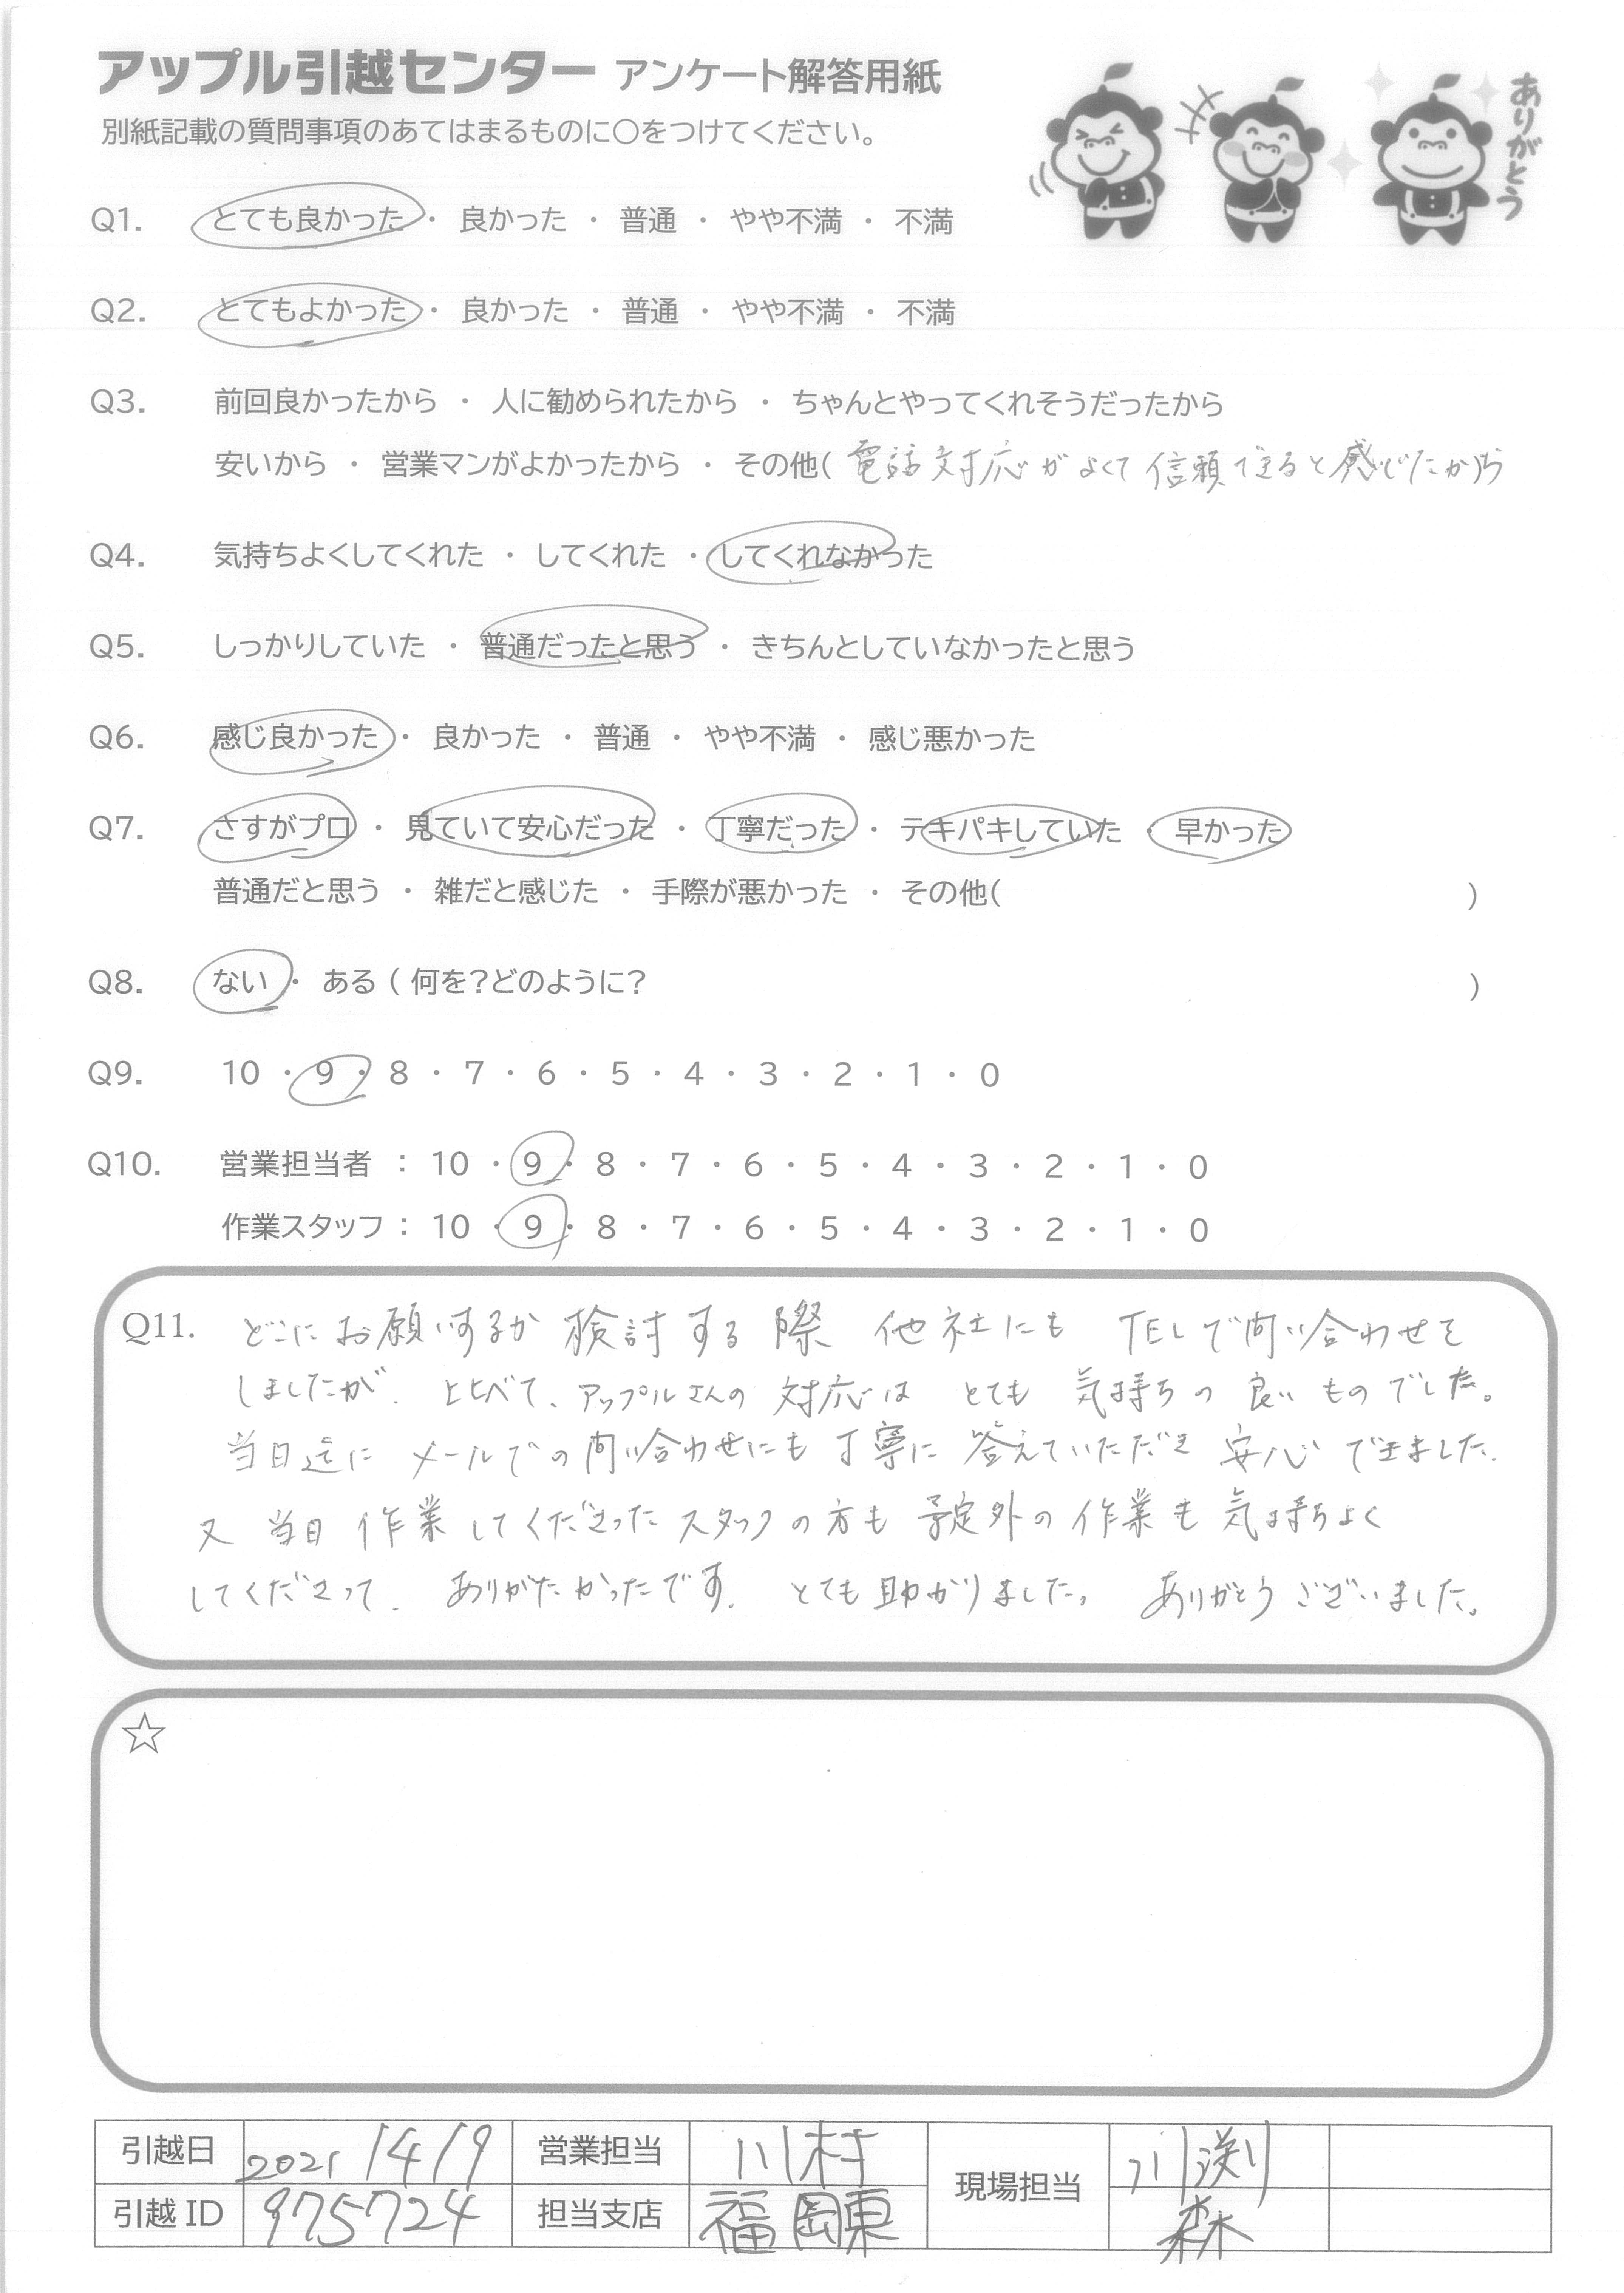 アップル引越センター アンケート解答用紙
ありがとう
別紙記載の質問事項のあてはまるものに○をつけてください。
Q1. とても良かった ・ 良かった ・ 普通 ・ やや不満 ・ 不満
Q2. とてもよかった ・ 良かった ・ 普通 ・ やや不満 ・ 不満
Q3. 前回良かったから ・ 人に勧められたから ・ ちゃんとやってくれそうだったから
安いから ・ 営業マンがよかったから ・ その他( 電話対応がよくて信頼できると感じたから
Q4. 気持ちよくしてくれた ・ してくれた ・ してくれなかった
Q5. しっかりしていた ・ 普通だったと思う ・ きちんとしていなかったと思う
Q6. 感じ良かった ・ 良かった ・ 普通 ・ やや不満 ・ 感じ悪かった
Q7. さすがプロ ・ 見ていて安心だった ・ 丁寧だった ・ テキパキしていた ・ 早かった
普通だと思う ・ 雑だと感じた ・ 手際が悪かった ・ その他( )
Q8. ない ・ ある ( 何を?どのように? )
Q9. 10 ・ 9 ・ 8 ・ 7 ・ 6 ・ 5 ・ 4 ・ 3 ・ 2 ・ 1 ・ 0
Q10. 営業担当者 : 10 ・ 9 ・ 8 ・ 7 ・ 6 ・ 5 ・ 4 ・ 3 ・ 2 ・ 1 ・ 0
作業スタッフ : 10 ・ 9 ・ 8 ・ 7 ・ 6 ・ 5 ・ 4 ・ 3 ・ 2 ・ 1 ・ 0
Q11. どこにお願いするか 検討する際 他社にも TELで問い合わせを
しましたが、比べて、アップルさんの対応は とても 気持ちの良いものでした。
当日迄に メールでの問い合わせにも丁寧に 答えていただき 安心できました。
又 当日 作業してくださったスタッフの方も 予定外の作業も気持ちよく
してくださって、ありがたかったです。とても助かりました。ありがとうございました。
☆
引越日 2021/4/9 営業担当 川村 現場担当 川渕
引越ID 975724 担当支店 福岡東 森